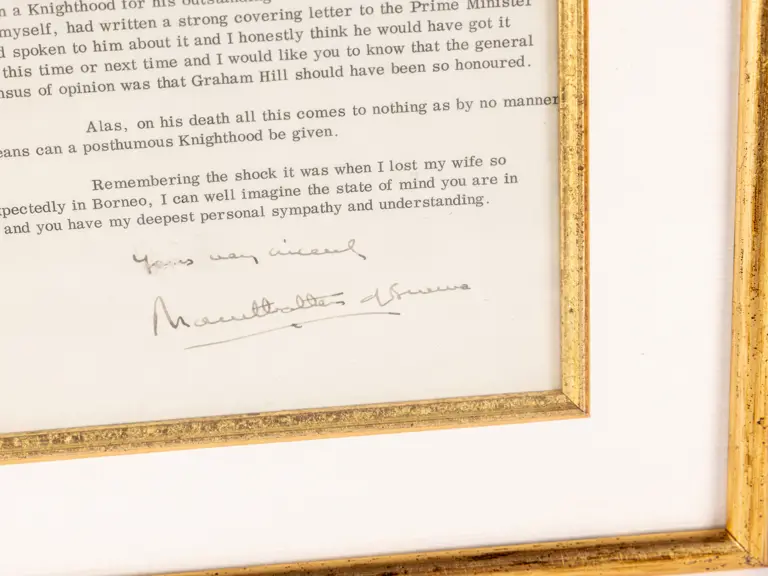 n a Knighthood for his outstanding
myself, had written a strong covering letter to the Prime Minister
d spoken to him about it and I honestly think he would have got it
this time or next time and I would like you to know that the general
nsus of opinion was that Graham Hill should have been so honoured.
Alas, on his death all this comes to nothing as by no manner
eans can a posthumous Knighthood be given.
Remembering the shock it was when I lost my wife so
xpectedly in Borneo, I can well imagine the state of mind you are in
and you have my deepest personal sympathy and understanding.
Yours very sincerely
Mountbatten of Burma